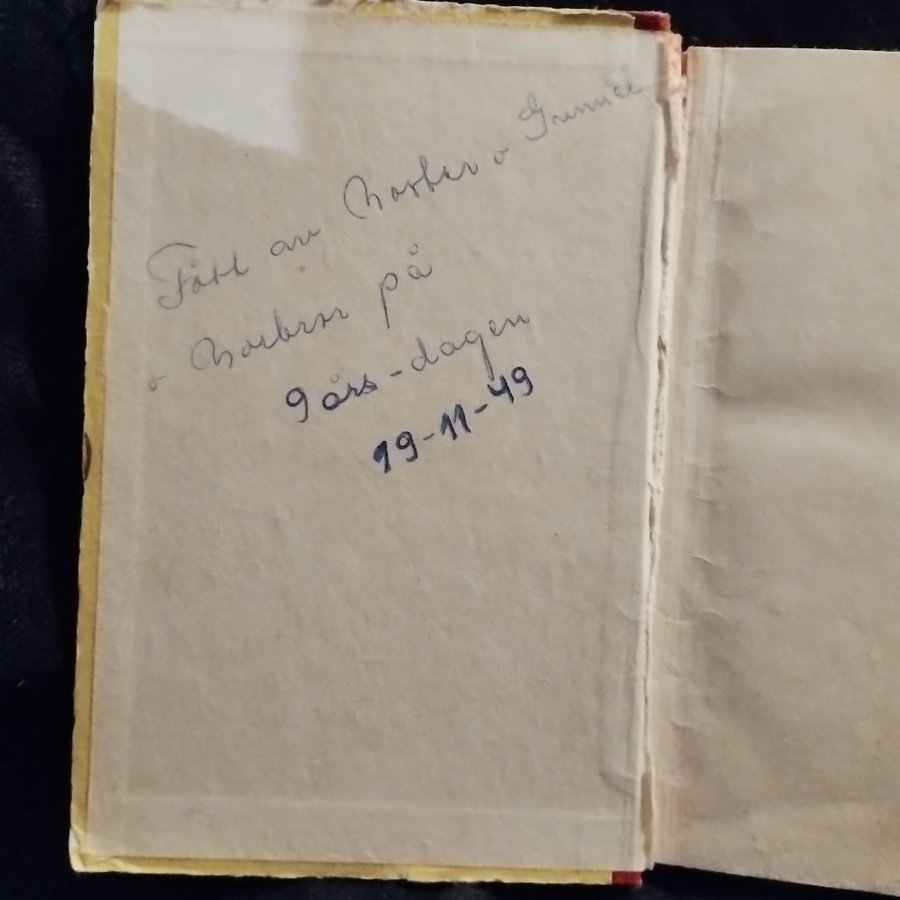 Fått av Morbror o Gunnel
o Morbror på
9 års-dagen
19-11-49